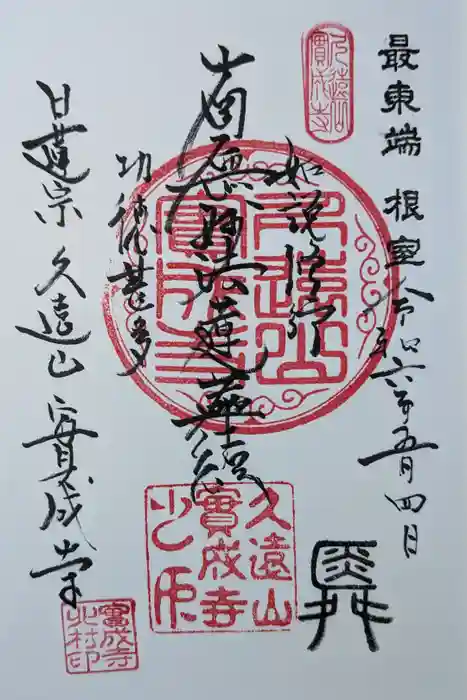 最東端 根室 令和六年五月四日
久遠山
實成寺
如説修行
南無妙法蓮華経
功徳甚多
久遠山
實成寺
久遠山
實成寺
之印
日蓮宗 久遠山 實成寺
實成寺
北村印